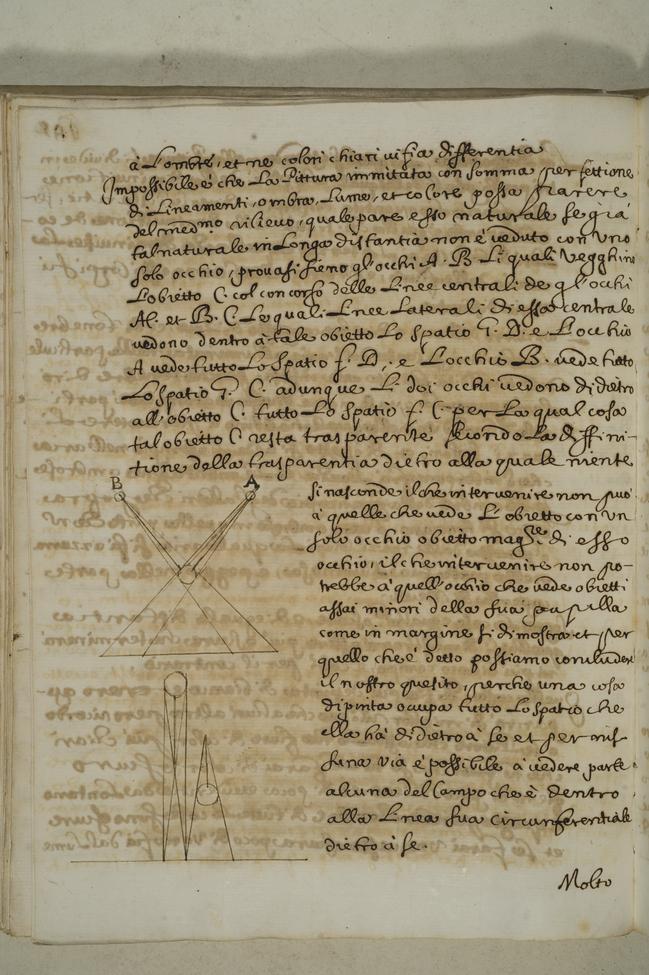 à L'ombre, et ne colori chiari vi sia differentia
Impossibile è che La Pittura immitata con somma perfettione
di Lineamenti, ombra, Lume, et colore possa parere
del med.mo rilievo, quale pare esso naturale se già
tal naturale in Longa distantia non è veduto con uno
solo occhio, provasi sieno gl'occhi A. B. Li quali Vegghino
L'obietto C. col concorso delle Linee centrali de gl'occhi
et B. C. Le quali Linee Laterali di essa centrale
vedono dentro à tale obietto Lo spatio G. D. e L'occhio
A vede tutto Lo Spatio f. D, e L'occhio B. vede tutto
Lo spatio G. C. adunque Li doi occhi vedono di dietro
all'obietto C. tutto Lo Spatio f C. per La qual cosa
tal obietto C resta trasparente secondo La diffini-
tione della trasparentia dietro alla quale niente
B A
si nasconde il che intervenire non può
à quelle che vede L'obietto con un
solo occhio obietto mag.re di esso
occhio, il che intervenire non po-
trebbe à quell'occhio che vede obietti
assai minori della sua pupilla
come in margine si dimostra et per
quello che è detto possiamo concludere
il nostro quesito, perche una cosa
dipinta ocupa tutto Lo spatio che
ella hà di dietro à se et per nis-
suna via è possibile à vedere parte
alcuna del Campo che è dentro
alla Linea sua circunferentiale
dietro à se.
Molto